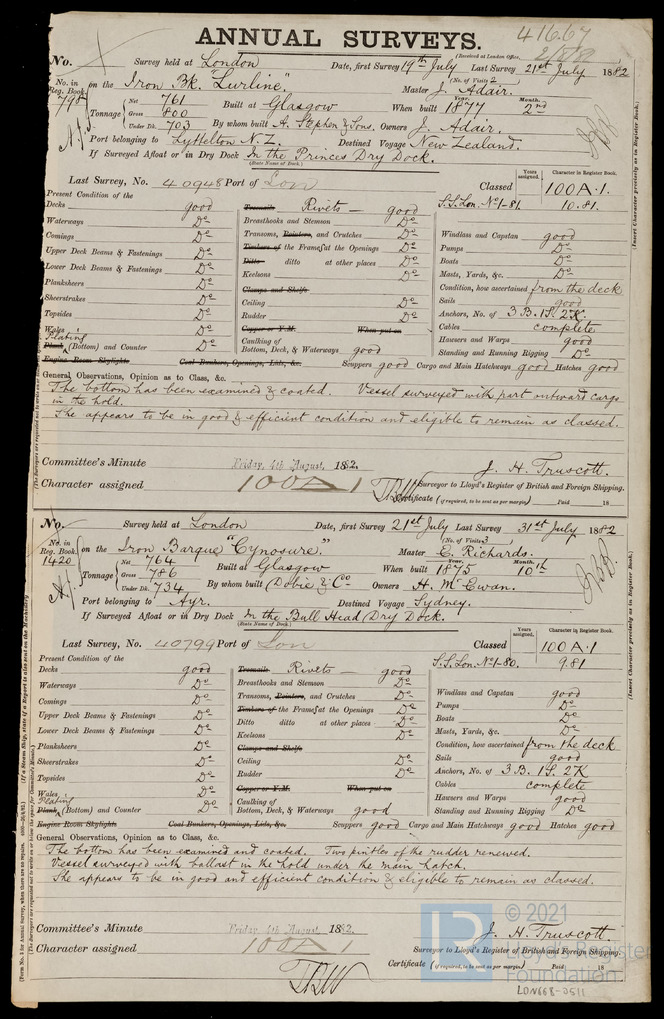 416.67
2/8/82
ANNUAL SURVEYS.
(Received at London Office,
No. Survey held at London Date, first Survey 19th July Last Survey 21st July 1882
No. in Reg. Book. 798 on the Iron Bk. "Lurline" (No. of Visits 2) Master J. Adair.
Tonnage Net 761 Gross 800 Under Dk. 703 Built at Glasgow When built Year. 1877 Month. 2nd
By whom built A. Stephen & Sons. Owners J. Adair.
Port belonging to Lyttelton N.Z. Destined Voyage New Zealand.
If Surveyed Afloat or in Dry Dock In the Princes Dry Dock.
(State Name of Dock.)
Last Survey, No. 40948 Port of Lon Classed Years assigned. Character in Register Book. 100A.1.
S.S. Lon. No 1-81. 10.81.
Present Condition of the
Decks good
Waterways Do
Comings Do
Upper Deck Beams & Fastenings Do
Lower Deck Beams & Fastenings Do
Planksheers Do
Sheerstrakes Do
Topsides Do
Wales Do
Plating
Plank (Bottom) and Counter Do
Engine Room Skylights Coal Bunkers, Openings, Lids, &c.
Treenails Rivets — good
Breasthooks and Stemson Do
Transoms, Pointers, and Crutches Do
Timbers of the Frames at the Openings Do
Ditto ditto at other places Do
Keelsons Do
Clamps and Shelfs
Ceiling Do
Rudder Do
Copper or Y.M. When put on
Caulking of
Bottom, Deck, & Waterways good
Windlass and Capstan good
Pumps Do
Boats Do
Masts, Yards, &c. Do
Condition, how ascertained from the deck
Sails good
Anchors, No. of 3 B. 1 S. 2 K.
Cables complete
Hawsers and Warps good
Standing and Running Rigging Do
Scuppers good Cargo and Main Hatchways good Hatches good
General Observations, Opinion as to Class, &c.
The bottom has been examined & coated. Vessel surveyed with part outward cargo
in the hold.
She appears to be in good & efficient condition and eligible to remain as classed.
Committee's Minute Friday, 4th August, 1882.
J. H. Truscott.
Character assigned 100A1
Surveyor to Lloyd's Register of British and Foreign Shipping.
Certificate (if required, to be sent as per margin) Paid 18
No. Survey held at London Date, first Survey 21st July Last Survey 31st July 1882
No. in Reg. Book. 1420 on the Iron Barque "Cynosure." (No. of Visits 3) Master E. Richards.
Tonnage Net 764 Gross 786 Under Dk. 734 Built at Glasgow When built Year. 1875 Month. 10th
By whom built Dobie & Co Owners H. McEwan.
Port belonging to Ayr. Destined Voyage Sydney.
If Surveyed Afloat or in Dry Dock In the Bull Head Dry Dock.
(State Name of Dock.)
Last Survey, No. 40799 Port of Lon Classed Years assigned. Character in Register Book. 100A.1
S.S. Lon. No 1-80. 9.81
Present Condition of the
Decks good
Waterways Do
Comings Do
Upper Deck Beams & Fastenings Do
Lower Deck Beams & Fastenings Do
Planksheers Do
Sheerstrakes Do
Topsides Do
Wales Do
Plating
Plank (Bottom) and Counter Do
Engine Room Skylights Coal Bunkers, Openings, Lids, &c.
Treenails Rivets — good
Breasthooks and Stemson Do
Transoms, Pointers, and Crutches Do
Timbers of the Frames at the Openings Do
Ditto ditto at other places Do
Keelsons Do
Clamps and Shelfs
Ceiling Do
Rudder Do
Copper or Y.M. When put on
Caulking of
Bottom, Deck, & Waterways good
Windlass and Capstan good
Pumps Do
Boats Do
Masts, Yards, &c. Do
Condition, how ascertained from the deck
Sails good
Anchors, No. of 3 B. 1 S. 2 K
Cables complete
Hawsers and Warps good
Standing and Running Rigging Do
Scuppers good Cargo and Main Hatchways good Hatches good
General Observations, Opinion as to Class, &c.
The bottom has been examined and coated. Two pintles of the rudder renewed.
Vessel surveyed with ballast in the hold under the main hatch.
She appears to be in good and efficient condition & eligible to remain as classed.
Committee's Minute Friday, 4th August 1882.
J. H. Truscott.
Character assigned 100A1
Surveyor to Lloyd's Register of British and Foreign Shipping.
Certificate (if required, to be sent as per margin) Paid 18
© 2021
Lloyd's Register
Foundation
LDN668-0511
(Insert Character precisely as in Register Book.)
(Insert Character precisely as in Register Book.)